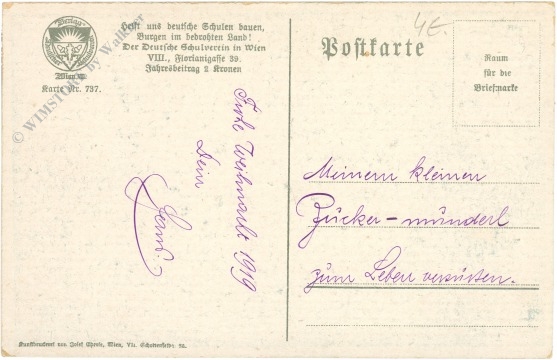 Verlag
Wien
Karte Nr. 737.
Helft uns deutsche Schulen bauen,
Burgen im bedrohten Land!
Der Deutsche Schulverein in Wien
VIII., Florianigasse 39.
Jahresbeitrag 2 Kronen
4€.
Postkarte
Raum
für die
Briefmarke
© WIMSTORE by Walloper
Frohe Weihnacht 1919
Dein
Meinem kleinen
Zucker-münderl
zum Leben versüßen.
Kunstdruckerei von Josef Eberle, Wien, VII. Schottenfeldg.